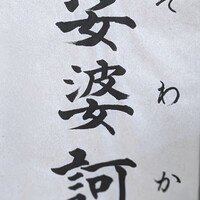 娑婆訶
そわか